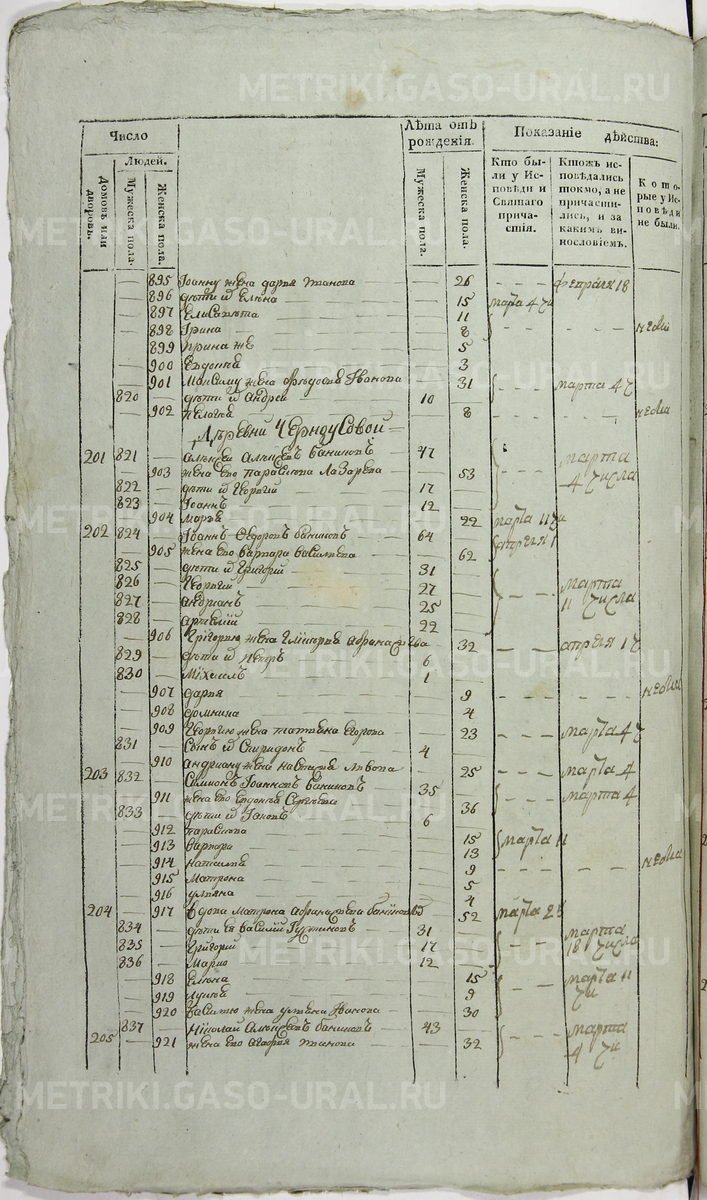 METRIKI.GASO-URAL.RU
Число
Лѣта отъ рожденія.
Показаніе дѣйства:
Домовъ или дворовъ.
Людей.
Мужеска пола.
Женска пола.
Мужеска пола.
Женска пола.
Кто были у Исповѣди и Святаго причастія.
Ктожъ исповѣдались токмо, а не причастились, и за какимъ винословіемъ.
Которые у Исповѣди не были.
895 Іоанну жена дарья 26 февраля 18
896 дѣти и Елена 15 марта 4 чи
897 Елисавета 11
898 Ірина 8
899 Ирина же 5
900 Евдокия 3
901 Максиму жена Ѳедосья Иванова 31 марта 4 ч
820 дѣти и Андрей 10
902 Пелагея 8
Деревни Черноусовой
201 821 Алексей Алексеевъ баниновъ 47 марта 4 числа
903 жена его параскова Лазарева 53
822 дѣти и Георгий 17
823 Іоаннъ 12
904 Марья 22 марта 11 чи
202 824 Іоаннъ Ѳедоровъ баниновъ 64 апреля 1
905 жена его варвара васильева 62
825 дѣти и Григорий 31
826 Георгий 27 марта 11 числа
827 андрианъ 25
828 22
906 Григорию жена 32 апреля 1 ч
829 дѣти и Петръ 6
830 Міхаилъ 1
907 дарья 9
908 домнина 4
909 Георгию жена татьяна Егорова 23 марта 4 ч
831 Сынъ и Спиридонъ 4
910 андриану жена настасья Львова 25 марта 4
203 832 Симионъ Іоанновъ баниновъ 35 марта 4
911 жена его Евдокья Сергеева 36
833 дѣти и 6
912 параскова 15 марта 11
913 варвара 13
914 наталья 9
915 Матрона 5
916 ульяна 4
204 917 вдова Матрона 52 марта 2
834 дѣти ея василий 31 марта 18 числа
835 Григорий 17
836 Марко 12
918 Елена 15 марта 11 чи
919 9
920 василью жена ульяна Иванова 30
837 Николай Алексеевъ баниновъ 43 марта 4 чи
205 921 жена его агафья 32